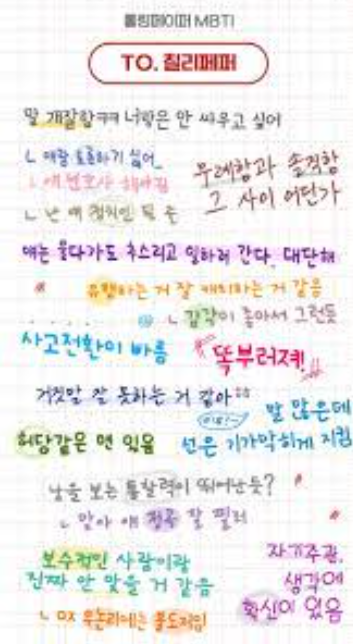 롤링페이퍼 MBTI
TO. 질리페퍼
말 개잘함ㅋㅋ 너랑은 안 싸우고 싶어
ㄴ 얘랑 토론하기 싫어
ㄴ 얘 변호사 해야됨
ㄴ 난 얘 정치인 될 듯
무례함과 솔직함
그 사이 어딘가
얘는 울다가도 추스리고 일하러 간다. 대단해
유행하는 거 잘 캐치하는 거 같음
ㄴ 감각이 좋아서 그런듯
사고전환이 빠름
똑부러져!
거짓말 잘 못하는 거 같아
허당같은 면 있음
말 많은데
선은 기가막히게 지킴
남을 보는 통찰력이 뛰어난듯?
ㄴ 맞아 얘 정곡 잘 찔러
보수적인 사람이랑
진짜 안 맞을 거 같음
자기주관,
생각에
확신이 있음